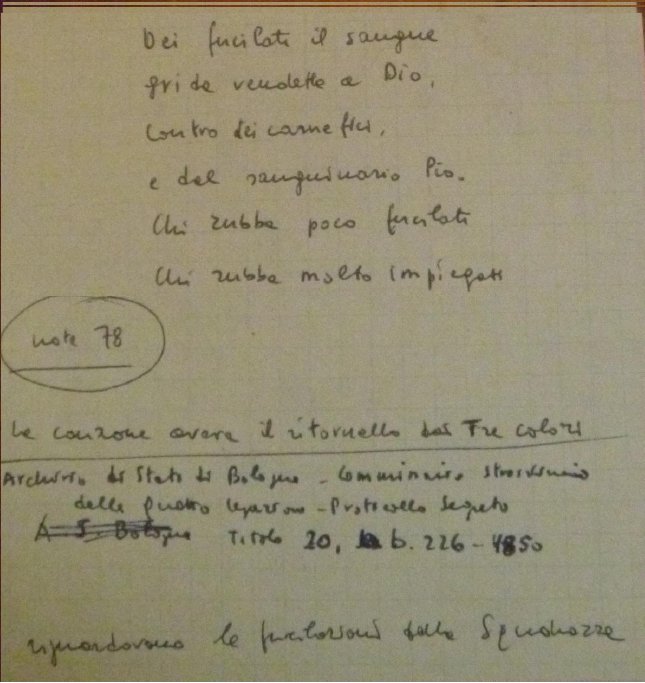 Dei fucilati il sangue
grida vendetta a Dio,
contro dei carnefici,
e del sanguinario Pio.
Chi rubba poco fucilati
Chi rubba molto impiegati
note 78
La canzone aveva il ritornello dei Tre colori
Archivio di Stato di Bologna - Commissario straordinario
delle Quattro legazioni - Protocollo Segreto
A. S. Bologna Titolo 20, b. 226 - 4850
riguardavano le fucilazioni della Squadrazza